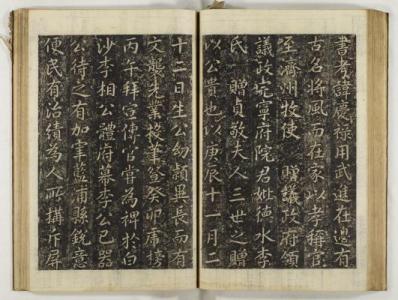 書考諱慶祿用武進在邊有
古名將風而在家以孝稱官
至濟州牧使 贈議政府領
議政完寧府院君妣德水李
氏 贈貞敬夫人三世之贈
以公貴也以庚辰十一月二
十二日生公幼穎異長而有
文襲先業投筆登癸卯虎榜
丙午拜宣傳官嘗為裨於白
沙李相公體府幕李公已器
公待之有加宰藍浦縣銳意
便民有治績為人所搆斥屏